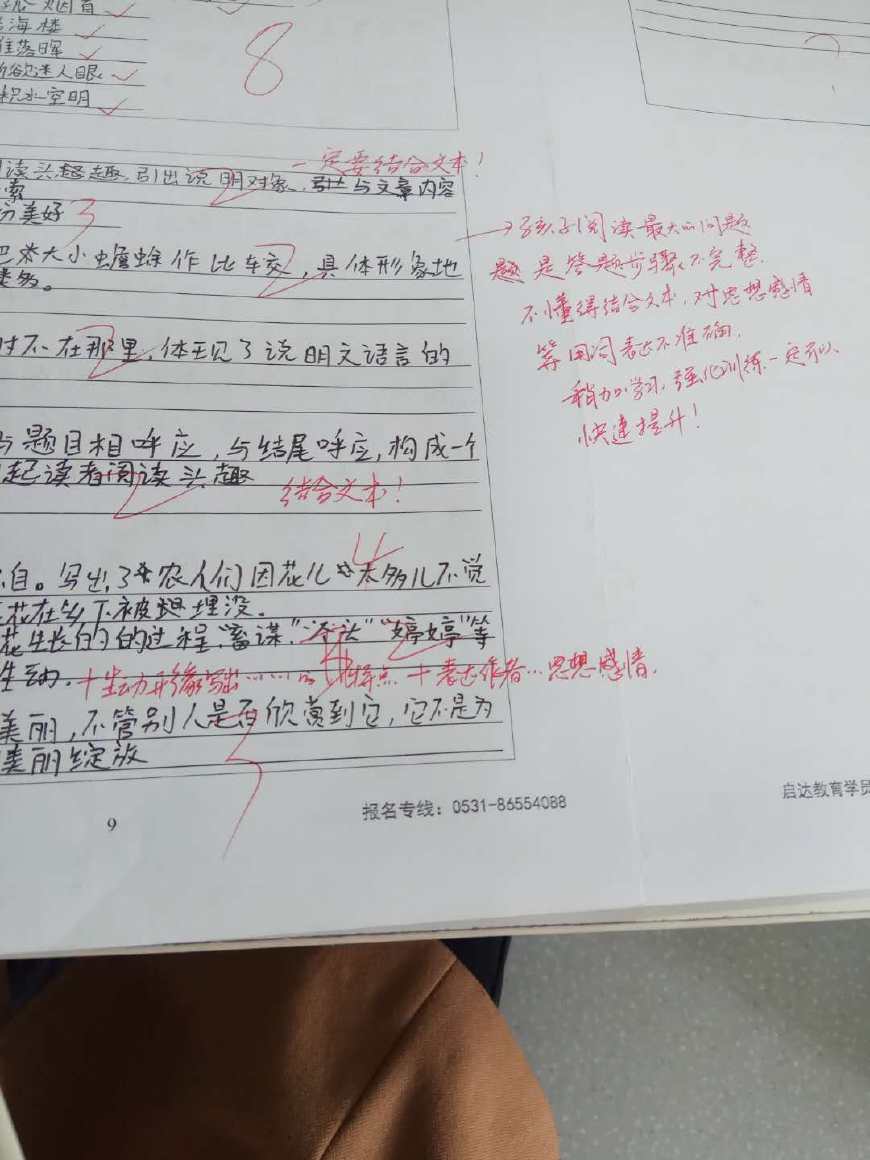 海楼
落晖
欲迷人眼
积水空明
8
一定要结合文本!
读兴趣,引出说明对象,引出与文章内容
索
美好
巴西大小蟾蜍作比较,具体形象地
类多。
时不在那里,体现了说明文语言的
与题目相呼应,与结尾呼应,构成一个
起读者阅读兴趣
结合文本!
自。写出了农人们因花儿太多儿不觉
花在乡下被埋没。
花生长的的过程,“畜谋”“婷婷”等
生动.
+生动形象写出……的特点+表达作者…思想感情.
美丽,不管别人是否欣赏到它,它不是为
美丽绽放
→孩子阅读最大的问题
是答题步骤不完整.
不懂得结合文本,对思想感情
等用词表达不准确.
稍加学习,强化训练一定可以
快速提升!
9
报名专线:0531-86554088
启达教育学员